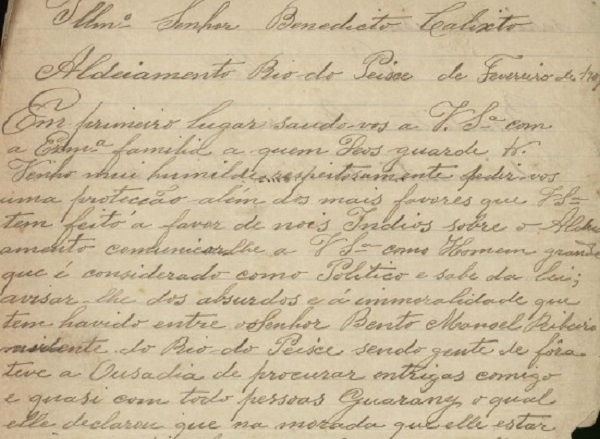 Illmº Senhor Benedicto Calixto
Aldeiamento Rio do Peixe de Fevereiro de
Em primeiro lugar saudo-vos a V. Sª com
a Exmª familia a quem Deos guarde
Venho mui humilde respeitosamente pedir-vos
uma protecção além dos mais favores que V Sª
tem feito a favor de nois Indios sobre o Aldei
amento comunicar-lhe a V Sª como Homem grande
que é considerado como Politico e sabe da lei;
avisar-lhe dos absurdos e á immoralidade que
tem havido entre o Senhor Bento Manoel Ribeiro
do Rio do Peixe sendo gente de fóra
teve a Ousadia de procurar entrigas comigo
e quasi com todo persoas Guarany o qual
elle declarou que na morada que elle estar